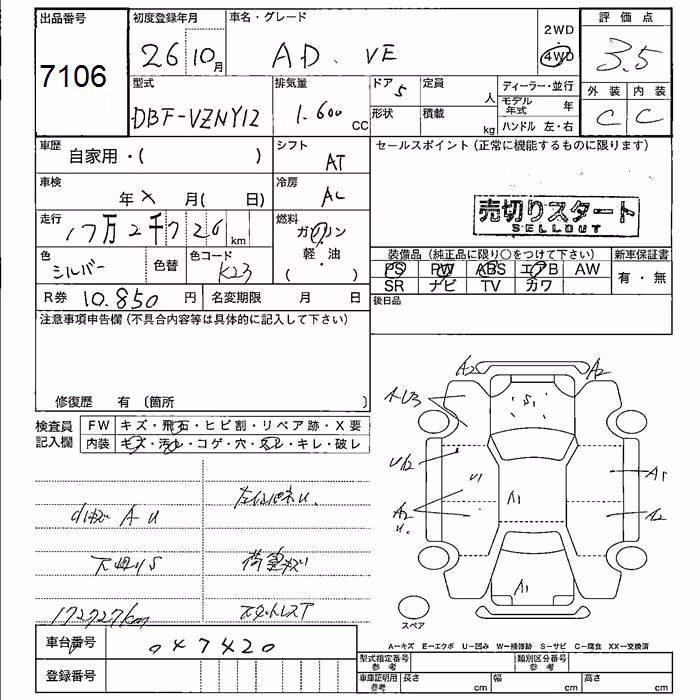 出品番号 初度登録年月 車名・グレード 2WD 評価点
7106 26 10月 AD. VE 4WD 3.5
型式 排気量 ドア 5 定員 人 ディーラー・並行 外装 内装
DBF-VZNY12 1.600 CC 形状 積載 kg モデル年式 年 C C
ハンドル 左・右
車歴 自家用・( ) シフト AT セールスポイント(正常に機能するものに限ります)
車検 年 × 月( 日) 冷房 AC
売切りスタート
SELLOUT
走行 17万2千726 km 燃料 ガソリン
軽・油
( )
色 シルバー 色替 色コード K23
装備品(純正品に限り○をつけて下さい) 新車保証書
PS PW ABS エアB AW 有・無
SR ナビ TV カワ
R券 10.850 円 名変期限 月 日 後日品
注意事項申告欄(不具合内容等は具体的に記入して下さい)
修復歴 有 〔箇所 〕
検査員記入欄 FW キズ・飛石・ヒビ割・リペア跡・X要
内装 キズ・汚レ・コゲ・穴・スレ・キレ・破レ
A2 A2
S1
U2 U1 A1 A1
A2 A2
U.
A1
A-U
下廻りS 荷室キズ
172727km スタットレスT
スペア
A-キズ E-エクボ U-凹み W-補修跡 S-サビ C-腐食 XX-交換済
車台番号 047420
型式指定番号 参考 類別区分番号 参考
登録番号
車庫証明用 参考 長さ cm 幅 cm 高さ cm